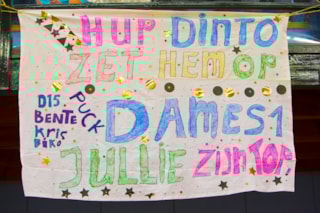 HUP DINTO
ZET HEM OP
DAMES 1
JULLIE ZIJN TOP!
DIS
BENTE
PUCK
KRIS